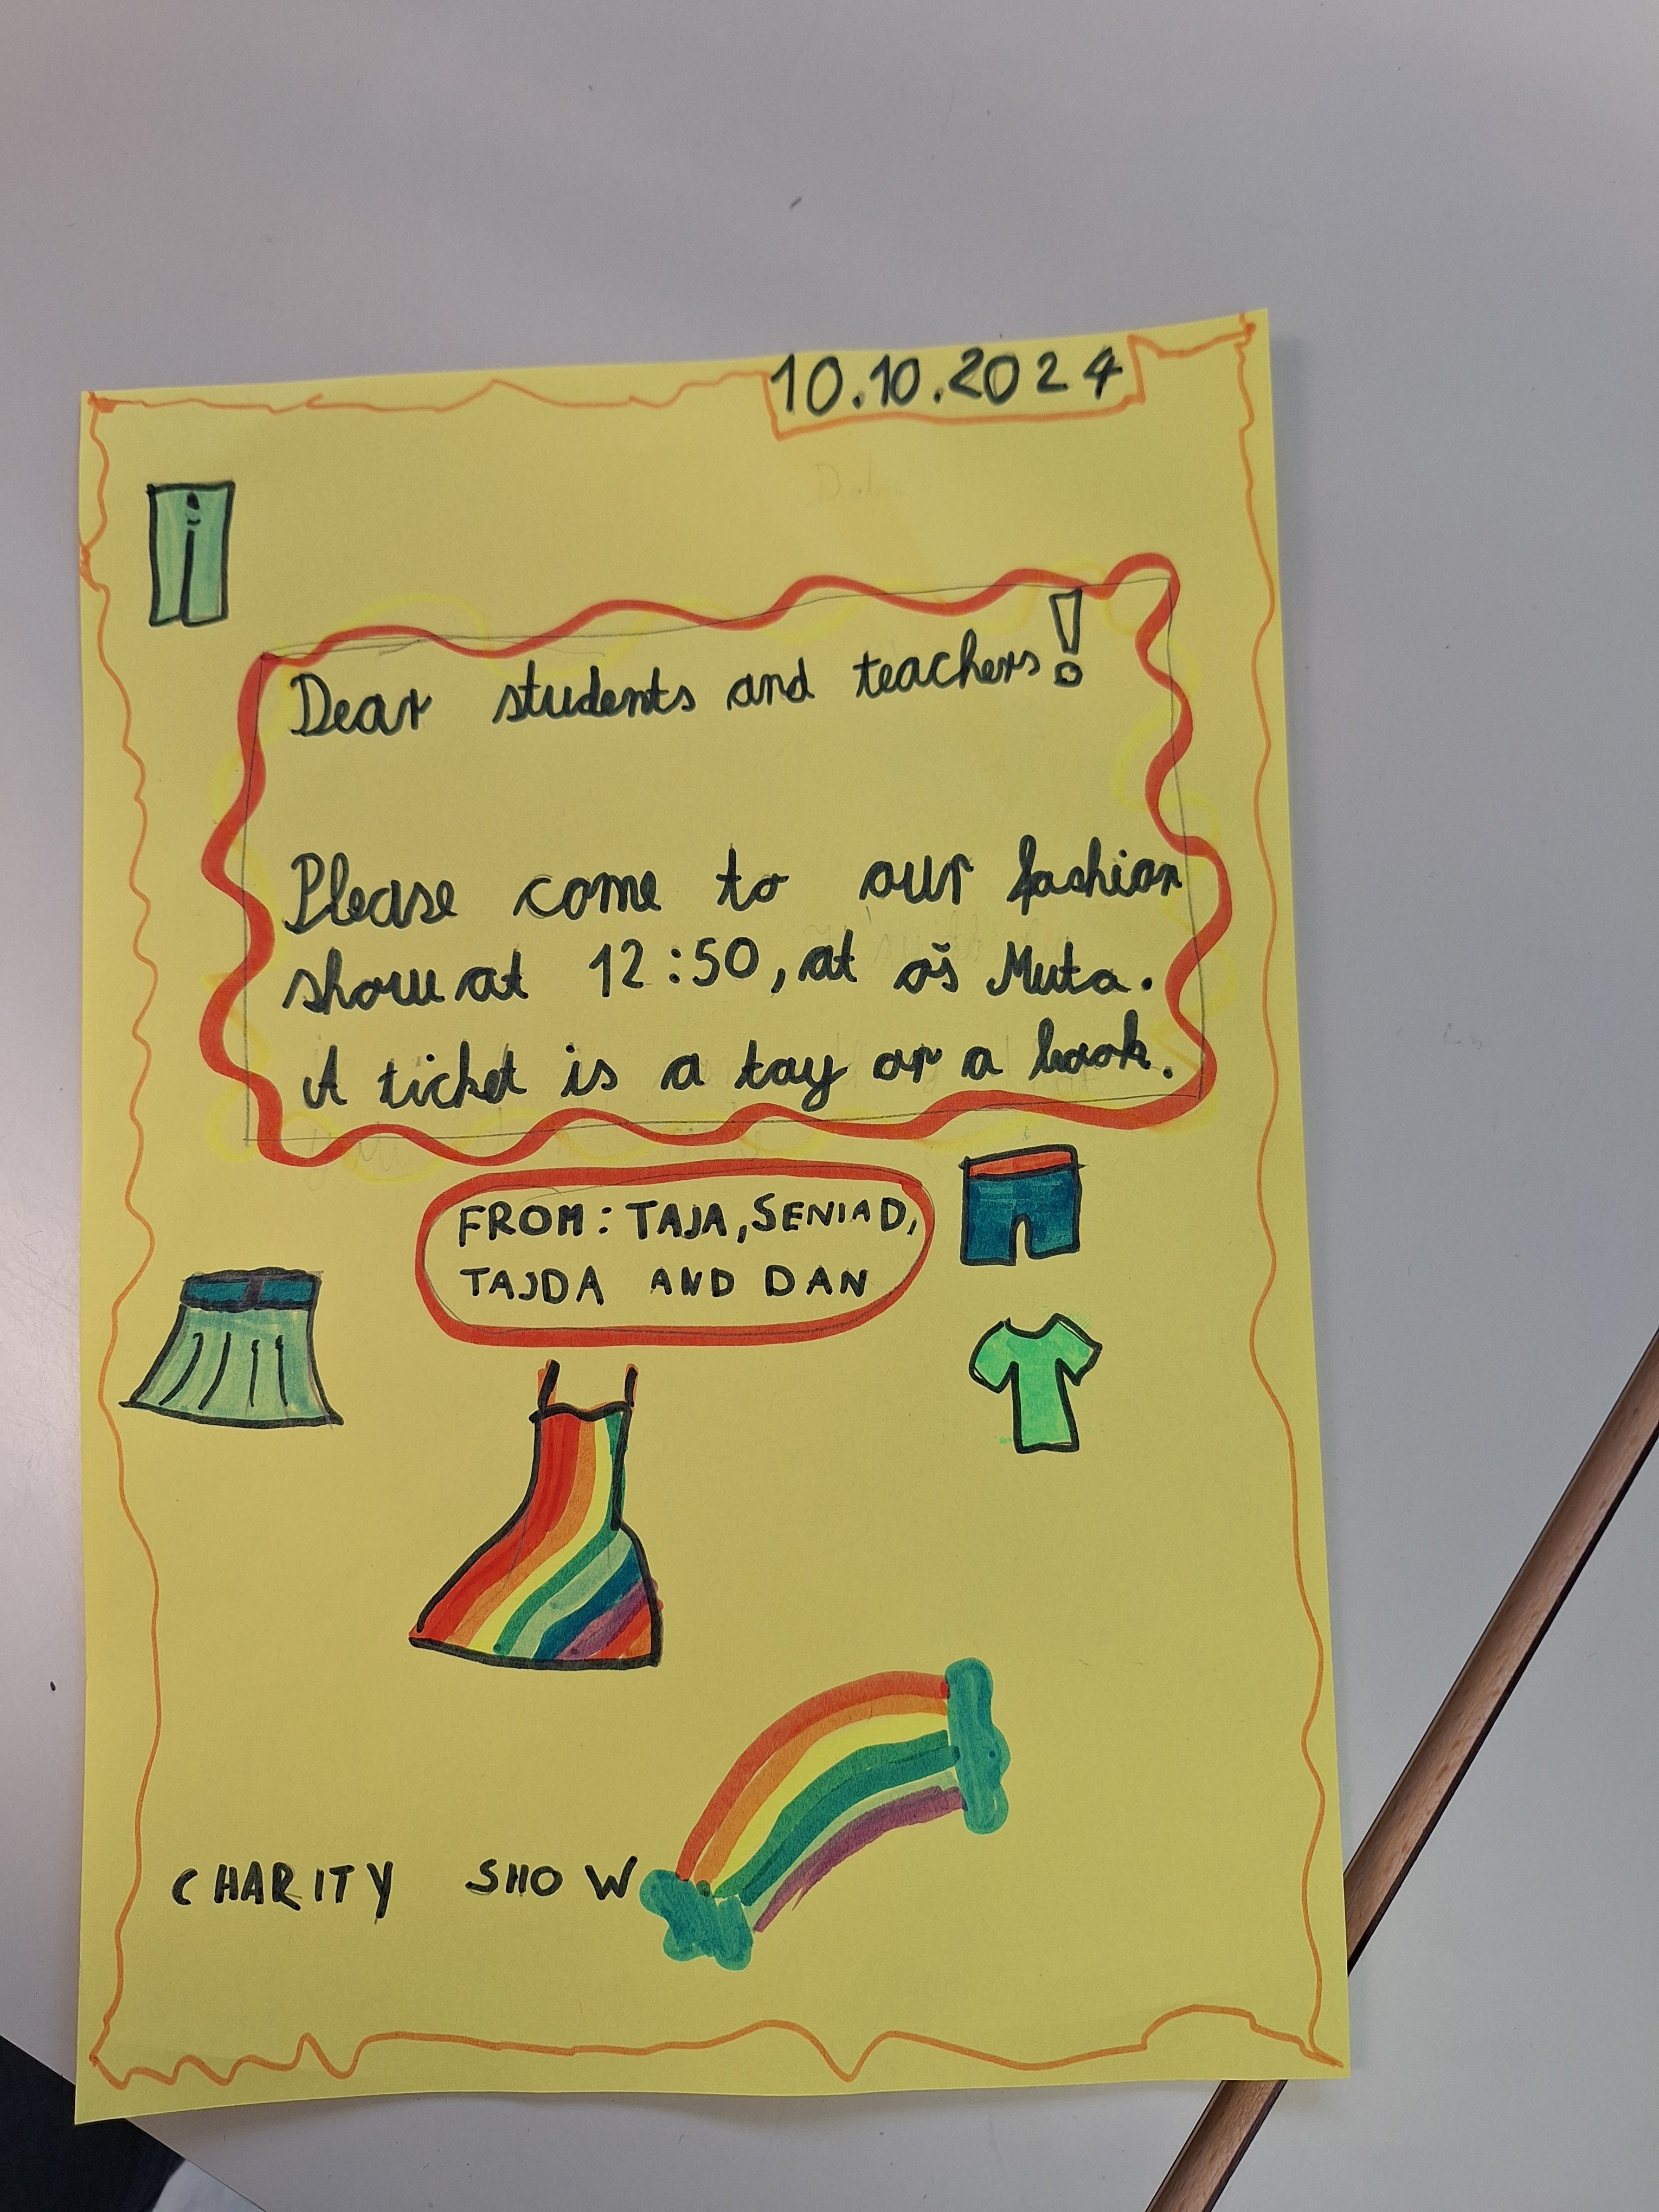 10.10.2024
Dear students and teachers!
Please come to our fashion
show at 12:50, at oš Muta.
A ticket is a toy or a book.
FROM: TAJA, SENIAD,
TAJDA AND DAN
CHARITY SHOW